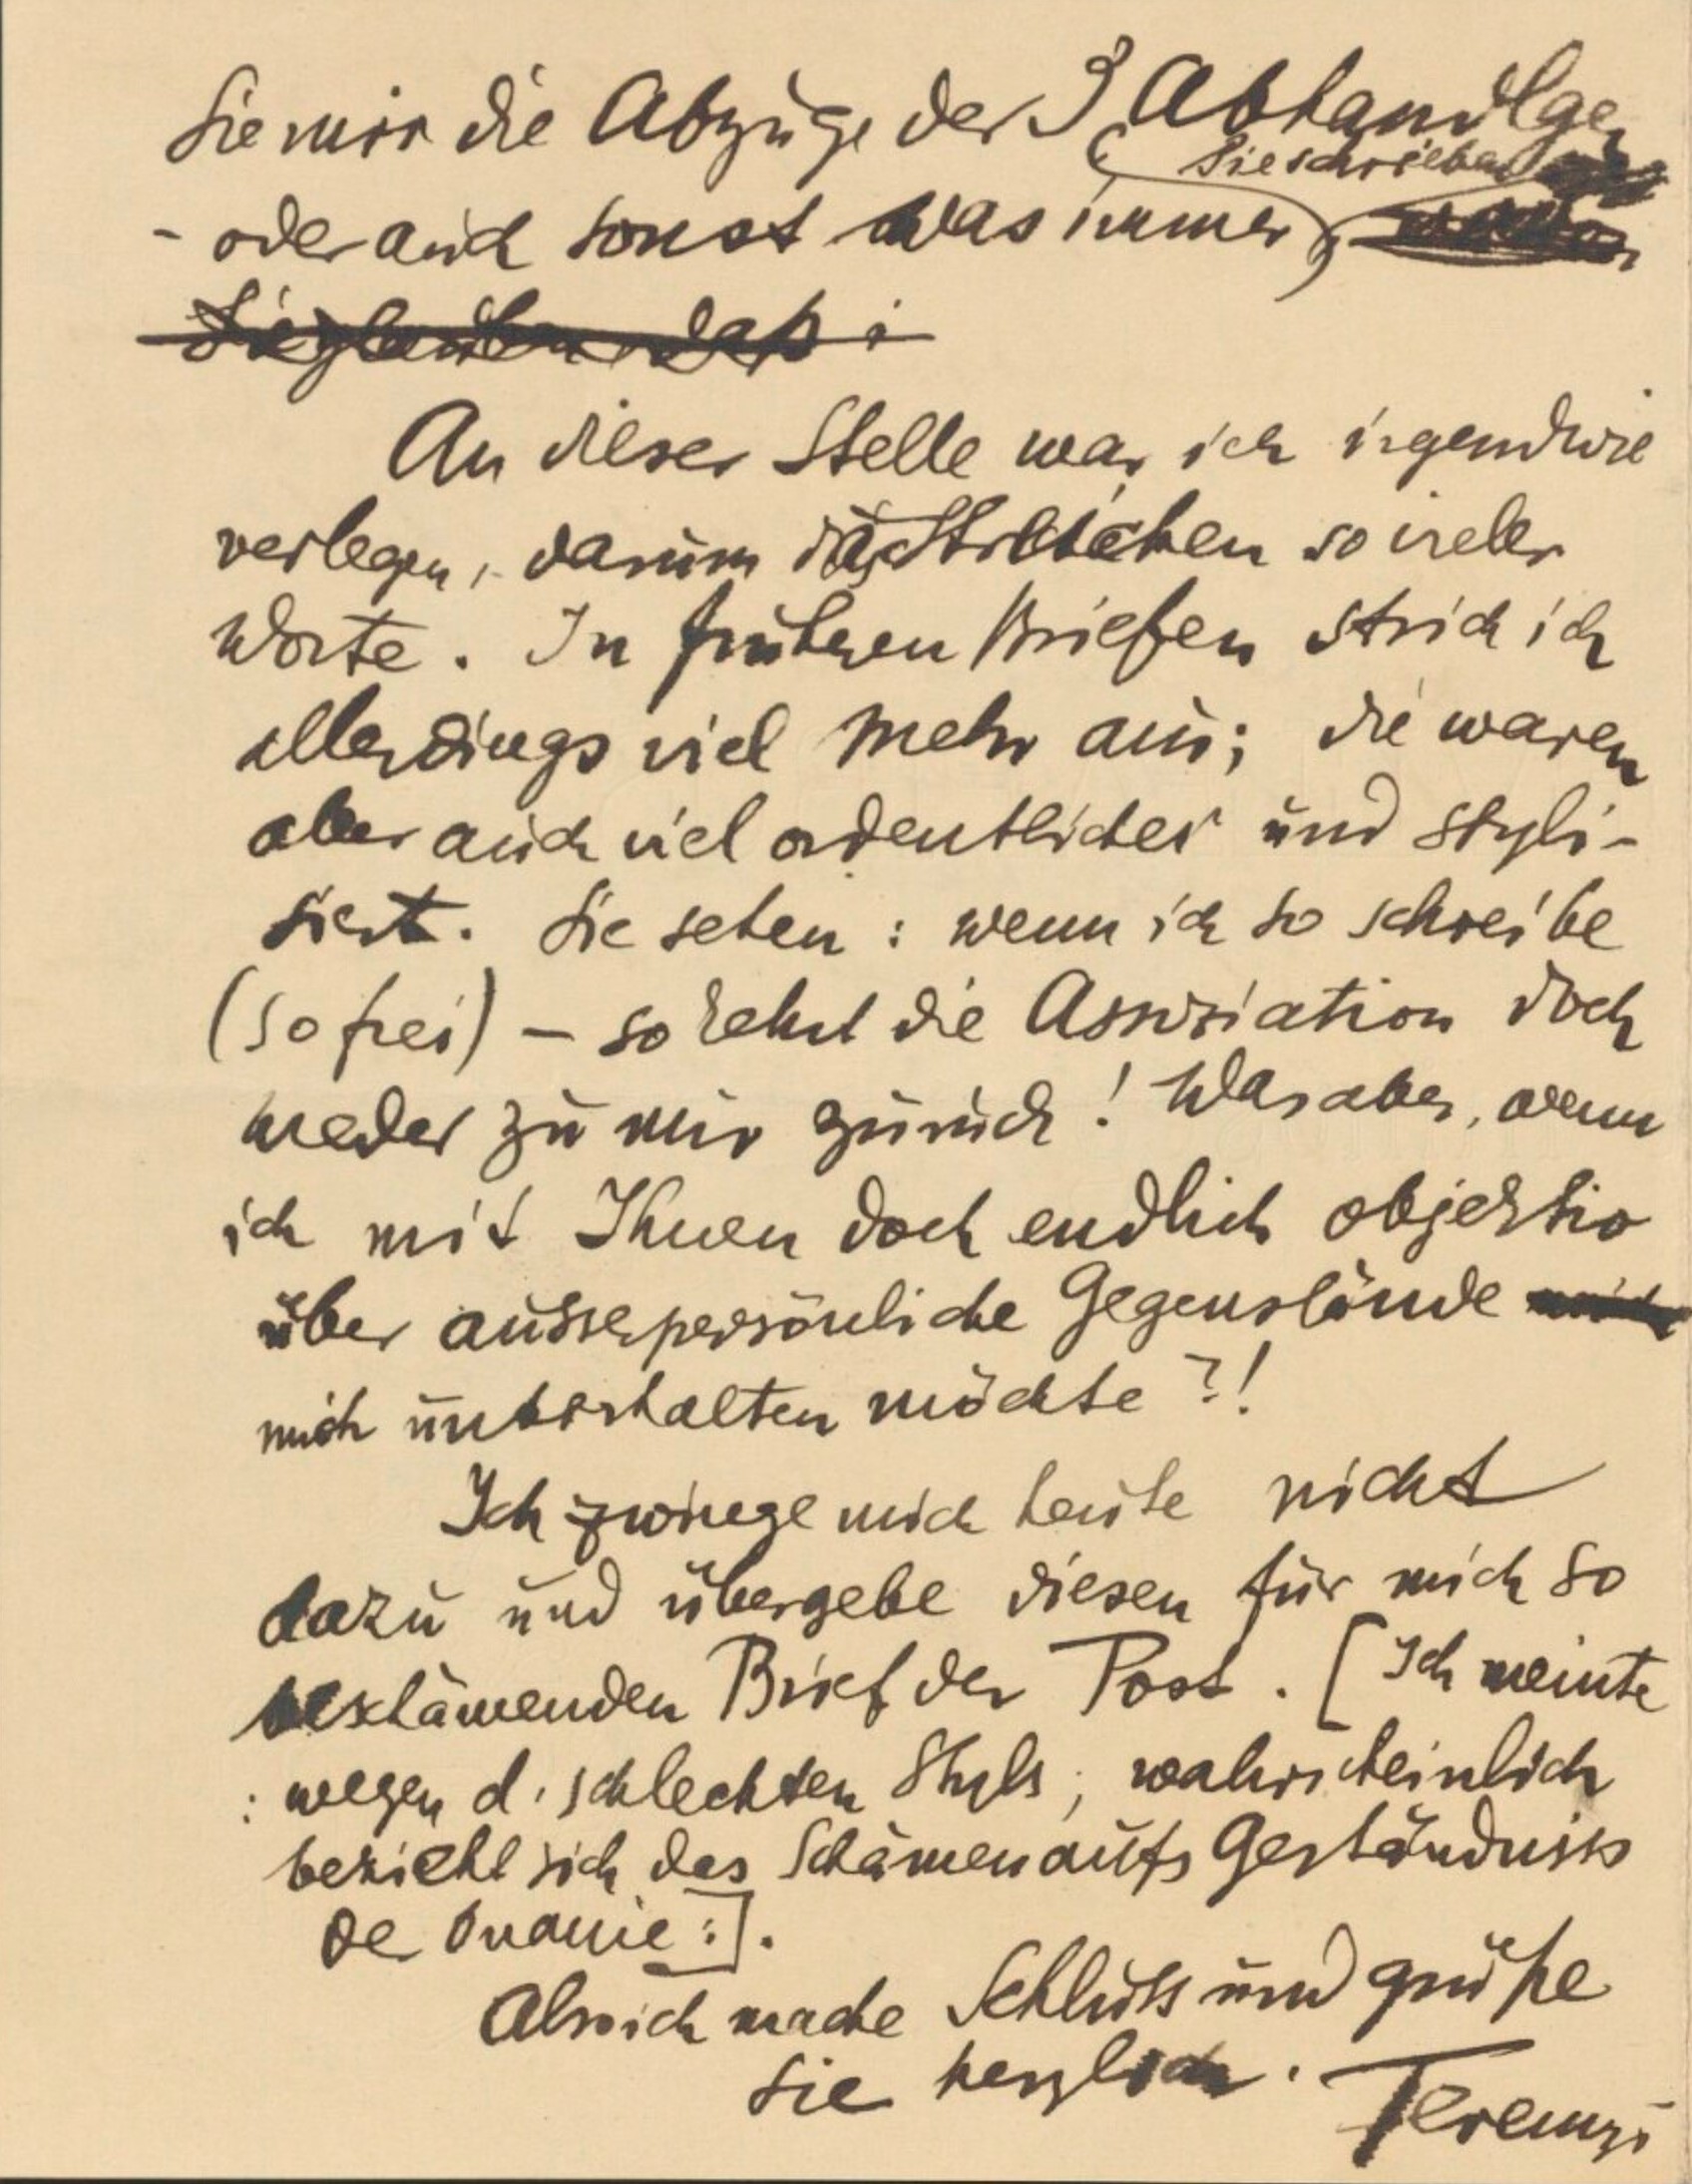 Sie mir die Abzüge der 3 Abhandlgen
Sie schrieben
- oder auch sonst was immer,
Sie glauben daß i
An dieser Stelle war ich irgendwie
verlegen, darum das Streichen so vieler
Worte. In früheren Briefen strich ich
allerdings viel mehr aus; die waren
aber auch viel ordentlicher und styli-
siert. Sie sehen: wenn ich so schreibe
(so frei) – so kehrt die Assoziation doch
wieder zu mir zurück! Was aber, wenn
ich mit Ihnen doch endlich objektiv
über ausserpersönliche Gegenstände
mich unterhalten möchte?!
Ich zwinge mich heute nicht
dazu und übergebe diesen für mich so
beschämenden Brief der Post. [Ich meinte
: wegen d. schlechten Styls; wahrscheinlich
bezieht sich das Schämen aufs Geständniss
der Onanie:].
Also ich mache Schluss und grüße
Sie herzlich. Ferenczi